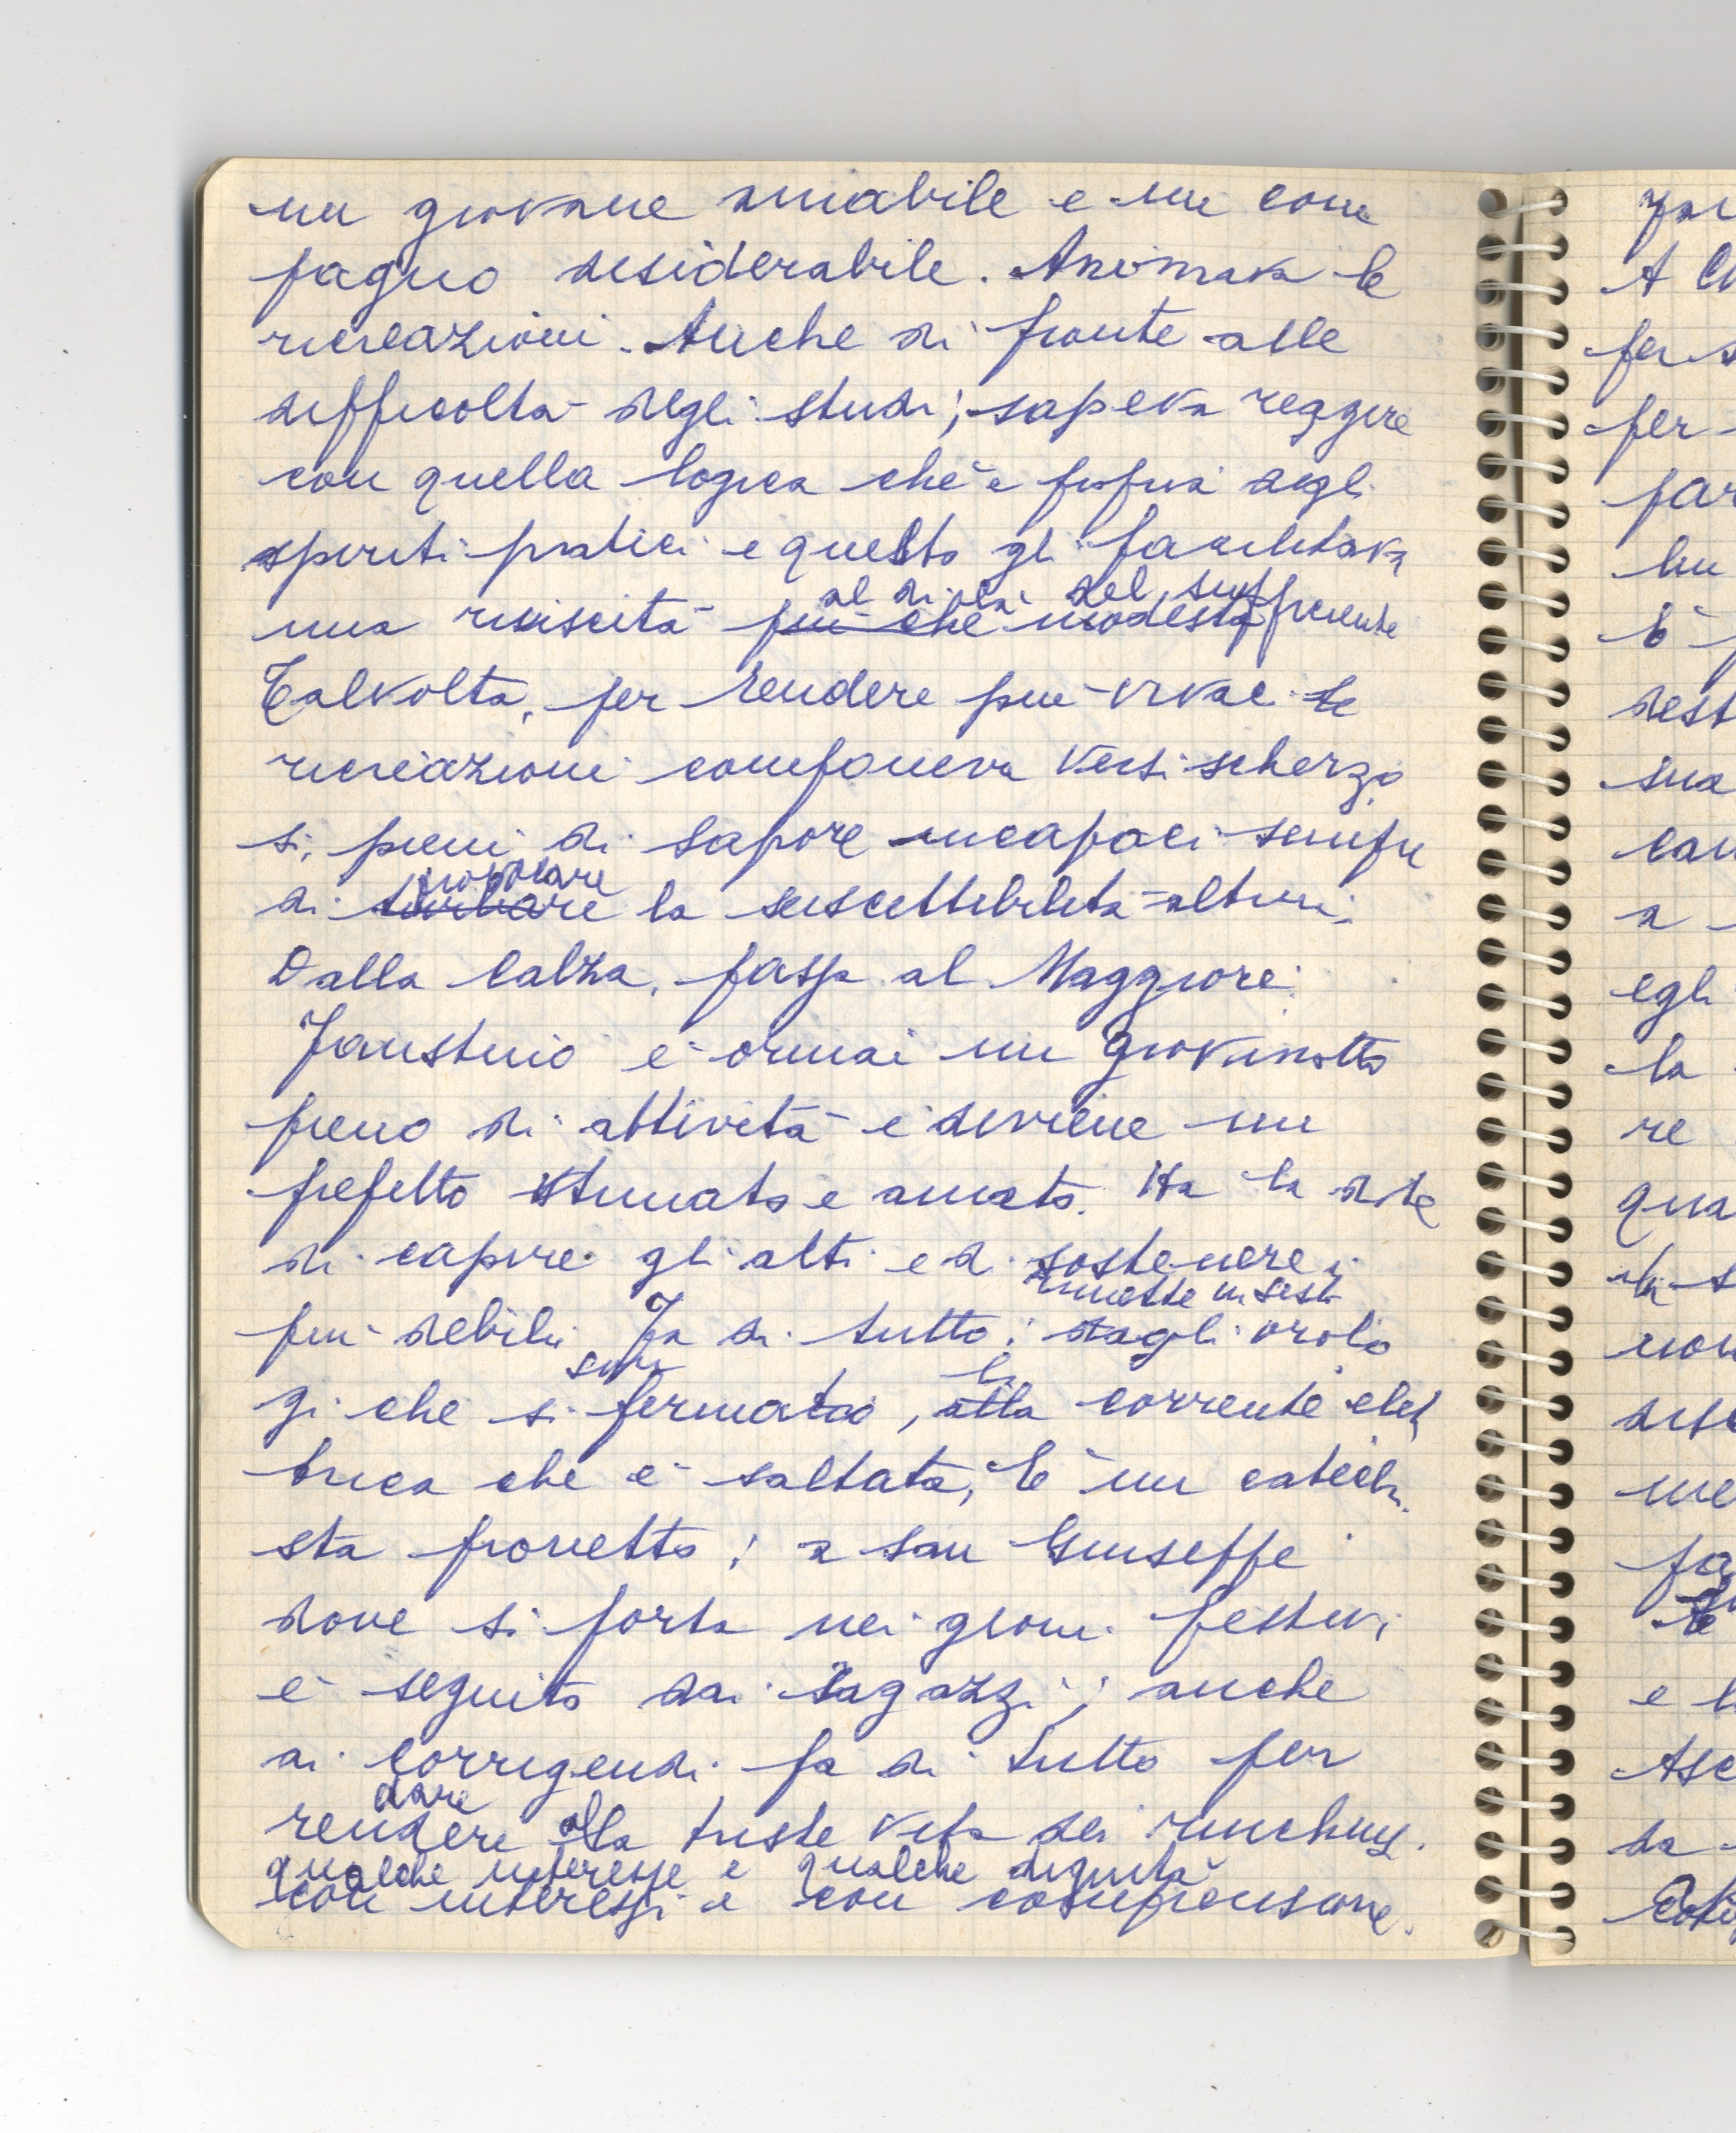 un giovane amabile e un com
pagno desiderabile. Animava le
ricreazioni. Anche di fronte alle
difficoltà degli studi; sapeva reggere
con quella logica che è propria degli
spiriti pratici e questo gli facilitava
al di là del sufficiente
una riuscita più che modesta
Talvolta, per rendere più vivaci le
ricreazioni componeva versi scherzo
si, pieni di sapore incapaci sempre
provocare
di turbare la suscettibilità altrui.
Dalla Calza, passa al Maggiore.
Faustino è ormai un giovinotto
pieno di attività e diviene un
prefetto stimato e amato. Ha la dote
di capire gli altri e di sostenere i
rimette in sesto
più debili. Fa di tutto: dagli orolo
sono
la
gi che si fermato, alla corrente elet
trica che è saltata, È un catechi
sta provetto; a san Giuseppe
dove si porta nei giorni festivi
è seguito dai ragazzi; anche
ai corrigendi fa di tutto per
dare
rendere alla triste vita dei rinchiusi.
qualche interesse e qualche dignità
con interessi e con comprensione.
A
per
per
e
la
re